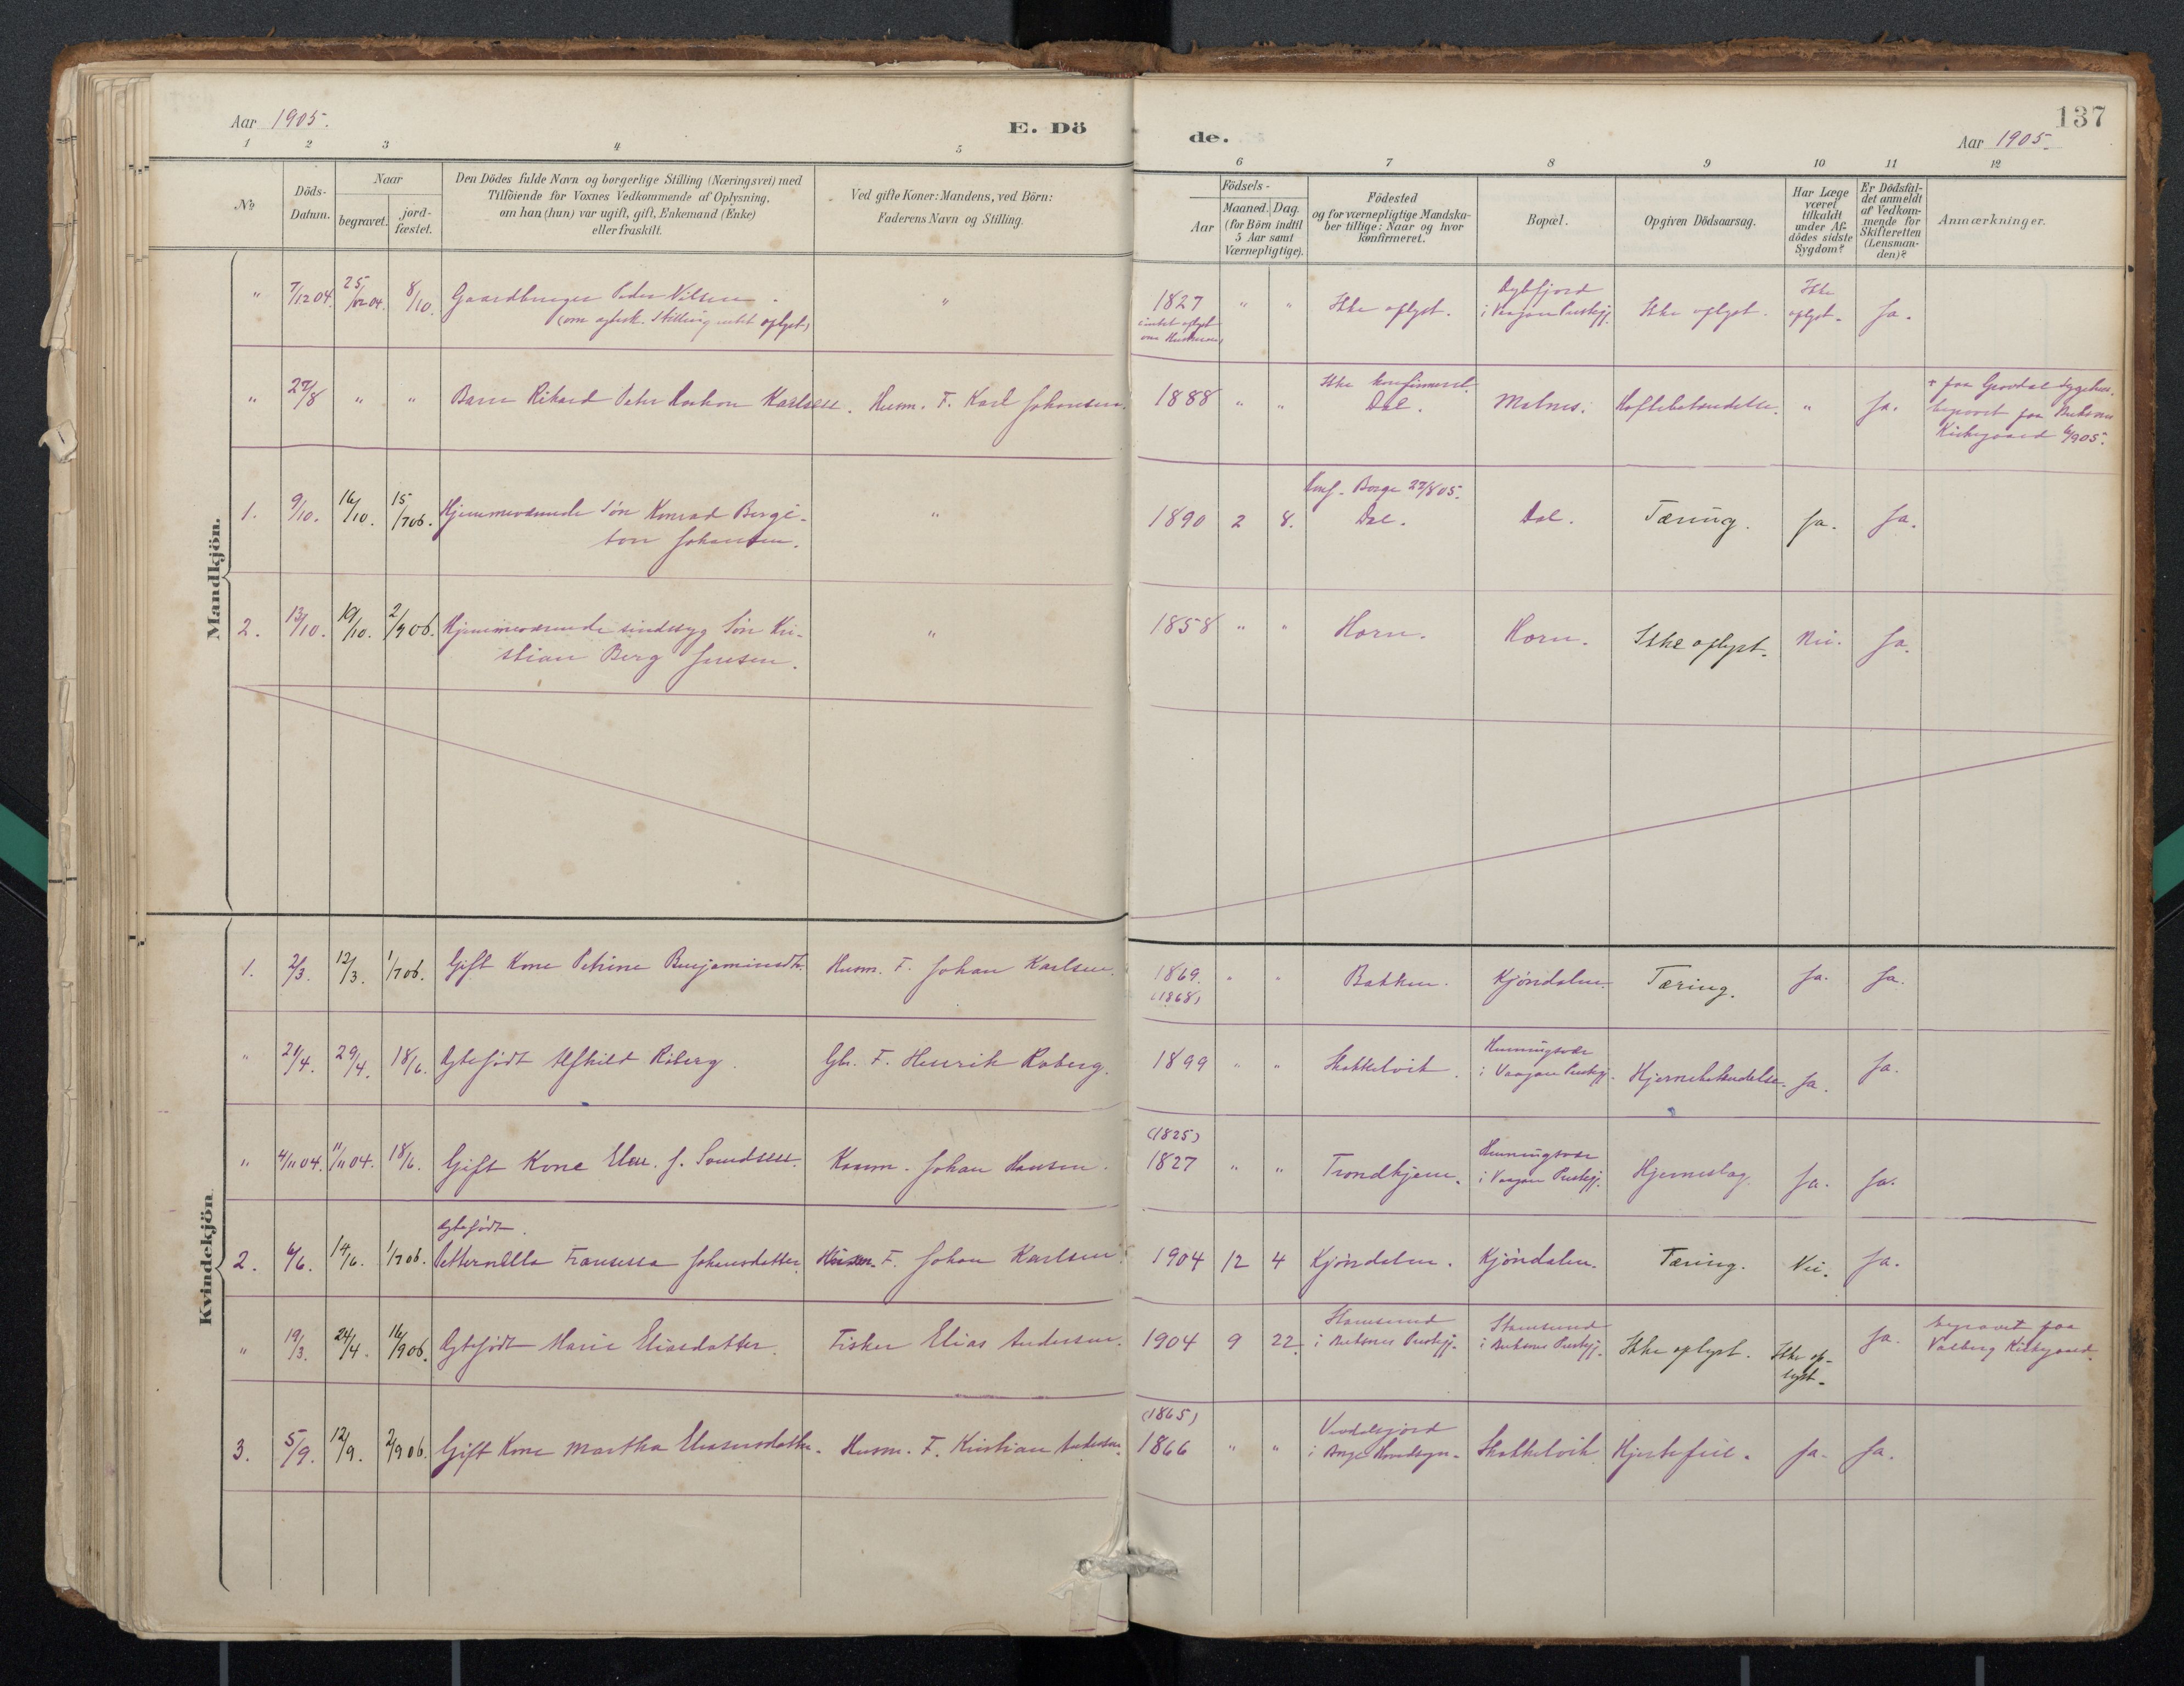 Aar 1905.
E. Dö
de.
137
Aar 1905.
1 2 3 4 5 6 7 8 9 10 11 12
No
Döds-
Datum.
Naar
begravet.
jord-
fæstet.
Den Dödes fulde Navn og borgerlige Stilling (Næringsvei) med
Tilföiende for Voxnes Vedkommende af Oplysning,
om han (hun) var ugift, gift, Enkemand (Enke)
eller fraskilt.
Ved gifte Koner: Mandens, ved Börn:
Faderens Navn og Stilling.
Födsels-
Aar
Maaned. Dag.
(for Börn indtil
5 Aar samt
Værnepligtige).
Födested
og for værnepligtige Mandska-
ber tillige: Naar og hvor
konfirmeret.
Bopæl.
Opgiven Dödsaarsag.
Har Læge
været
tilkaldt
under Af-
dödes sidste
Sygdom?
Er Dödsfal-
det anmeldt
af Vedkom-
mende for
Skifteretten
(Lensman-
den)?
Anmærkninger.
Mandkjön.
" 7/12 04. 25/12 04. 8/10. Gaardbruger Peder Nilsen. " 1827 " " Ikke oplyst. Dybfjord Ikke oplyst. Ikke Ja.
(om ægtesk. Stilling intet oplyst) (intet oplyst i Vaagan Prestgj. oplyst.
" 27/8 " " Barn Rikard Peter Haakon Karlsen. Husm. F. Karl Johansen. 1888 " " Ikke konfirmeret. Malnes. Hoftebetændelse. " Ja. + paa Gravdal Sygehus,
Dal. begravet paa Buksnes
Kirkegaard
1. 9/10. 16/10. 15/7 06. Hjemmeværende Søn Konrad Bergi- " 1890 2 8. Konf. Borge 27/8 05. Dal. Tæring. Ja. Ja.
ton Johansen. Dal.
2. 13/10. 19/10. 2/9 06. Hjemmeværende sindssyg Søn Kri- " 1858 " " Horn. Horn. Ikke oplyst. Nei. Ja.
stian Berg Jensen.
Kvindekjön.
1. 2/3. 12/3. 1/7 06. Gift Kone Petrine Benjaminsdtr. Husm. F. Johan Karlsen. 1869. " " Bakken. Kjøndalen. Tæring. Ja. Ja.
(1868)
" 21/4. 29/4. 18/6. Ægtefødt Alfhild Roberg. Gbr. F. Henrik Roberg. 1899 " " Skokkelvik. Henningsvær Hjernebetændelse. Ja. Ja.
i Vaagan Prestgj.
" 4/11 04. 11/11 04. 18/6. Gift Kone Elen. J. Svendsen. Johan Hansen. (1825) " " Trondhjem. Henningsvær Hjerneslag. Ja. Ja.
1827 i Vaagan Prestgj.
Ægtefødt.
2. 6/6. 14/6. 1/7 06. Petternella Fransessa Johansdatter. Husm. F. Johan Karlsen. 1904 12 4 Kjøndalen. Kjøndalen. Tæring. Nei. Ja.
" 19/3. 24/4. 16/9 06. Ægtefødt Marie Eliasdatter. Fisker Elias Andersen. 1904 9 22. Stamsund Stamsund Ikke oplyst. Ikke op- Ja. begravet paa
i Buksnes Prestgj. i Buksnes Prestgj. lyst. Valberg Kirkegaard.
3. 5/9. 12/9. 2/9 06. Gift Kone Martha Eliasensdatter. Husm. F. Kristian Andersen. (1865) " " Skokkelvik. Hjertefeil. Ja. Ja.
1866 i Borge Hovedsogn.